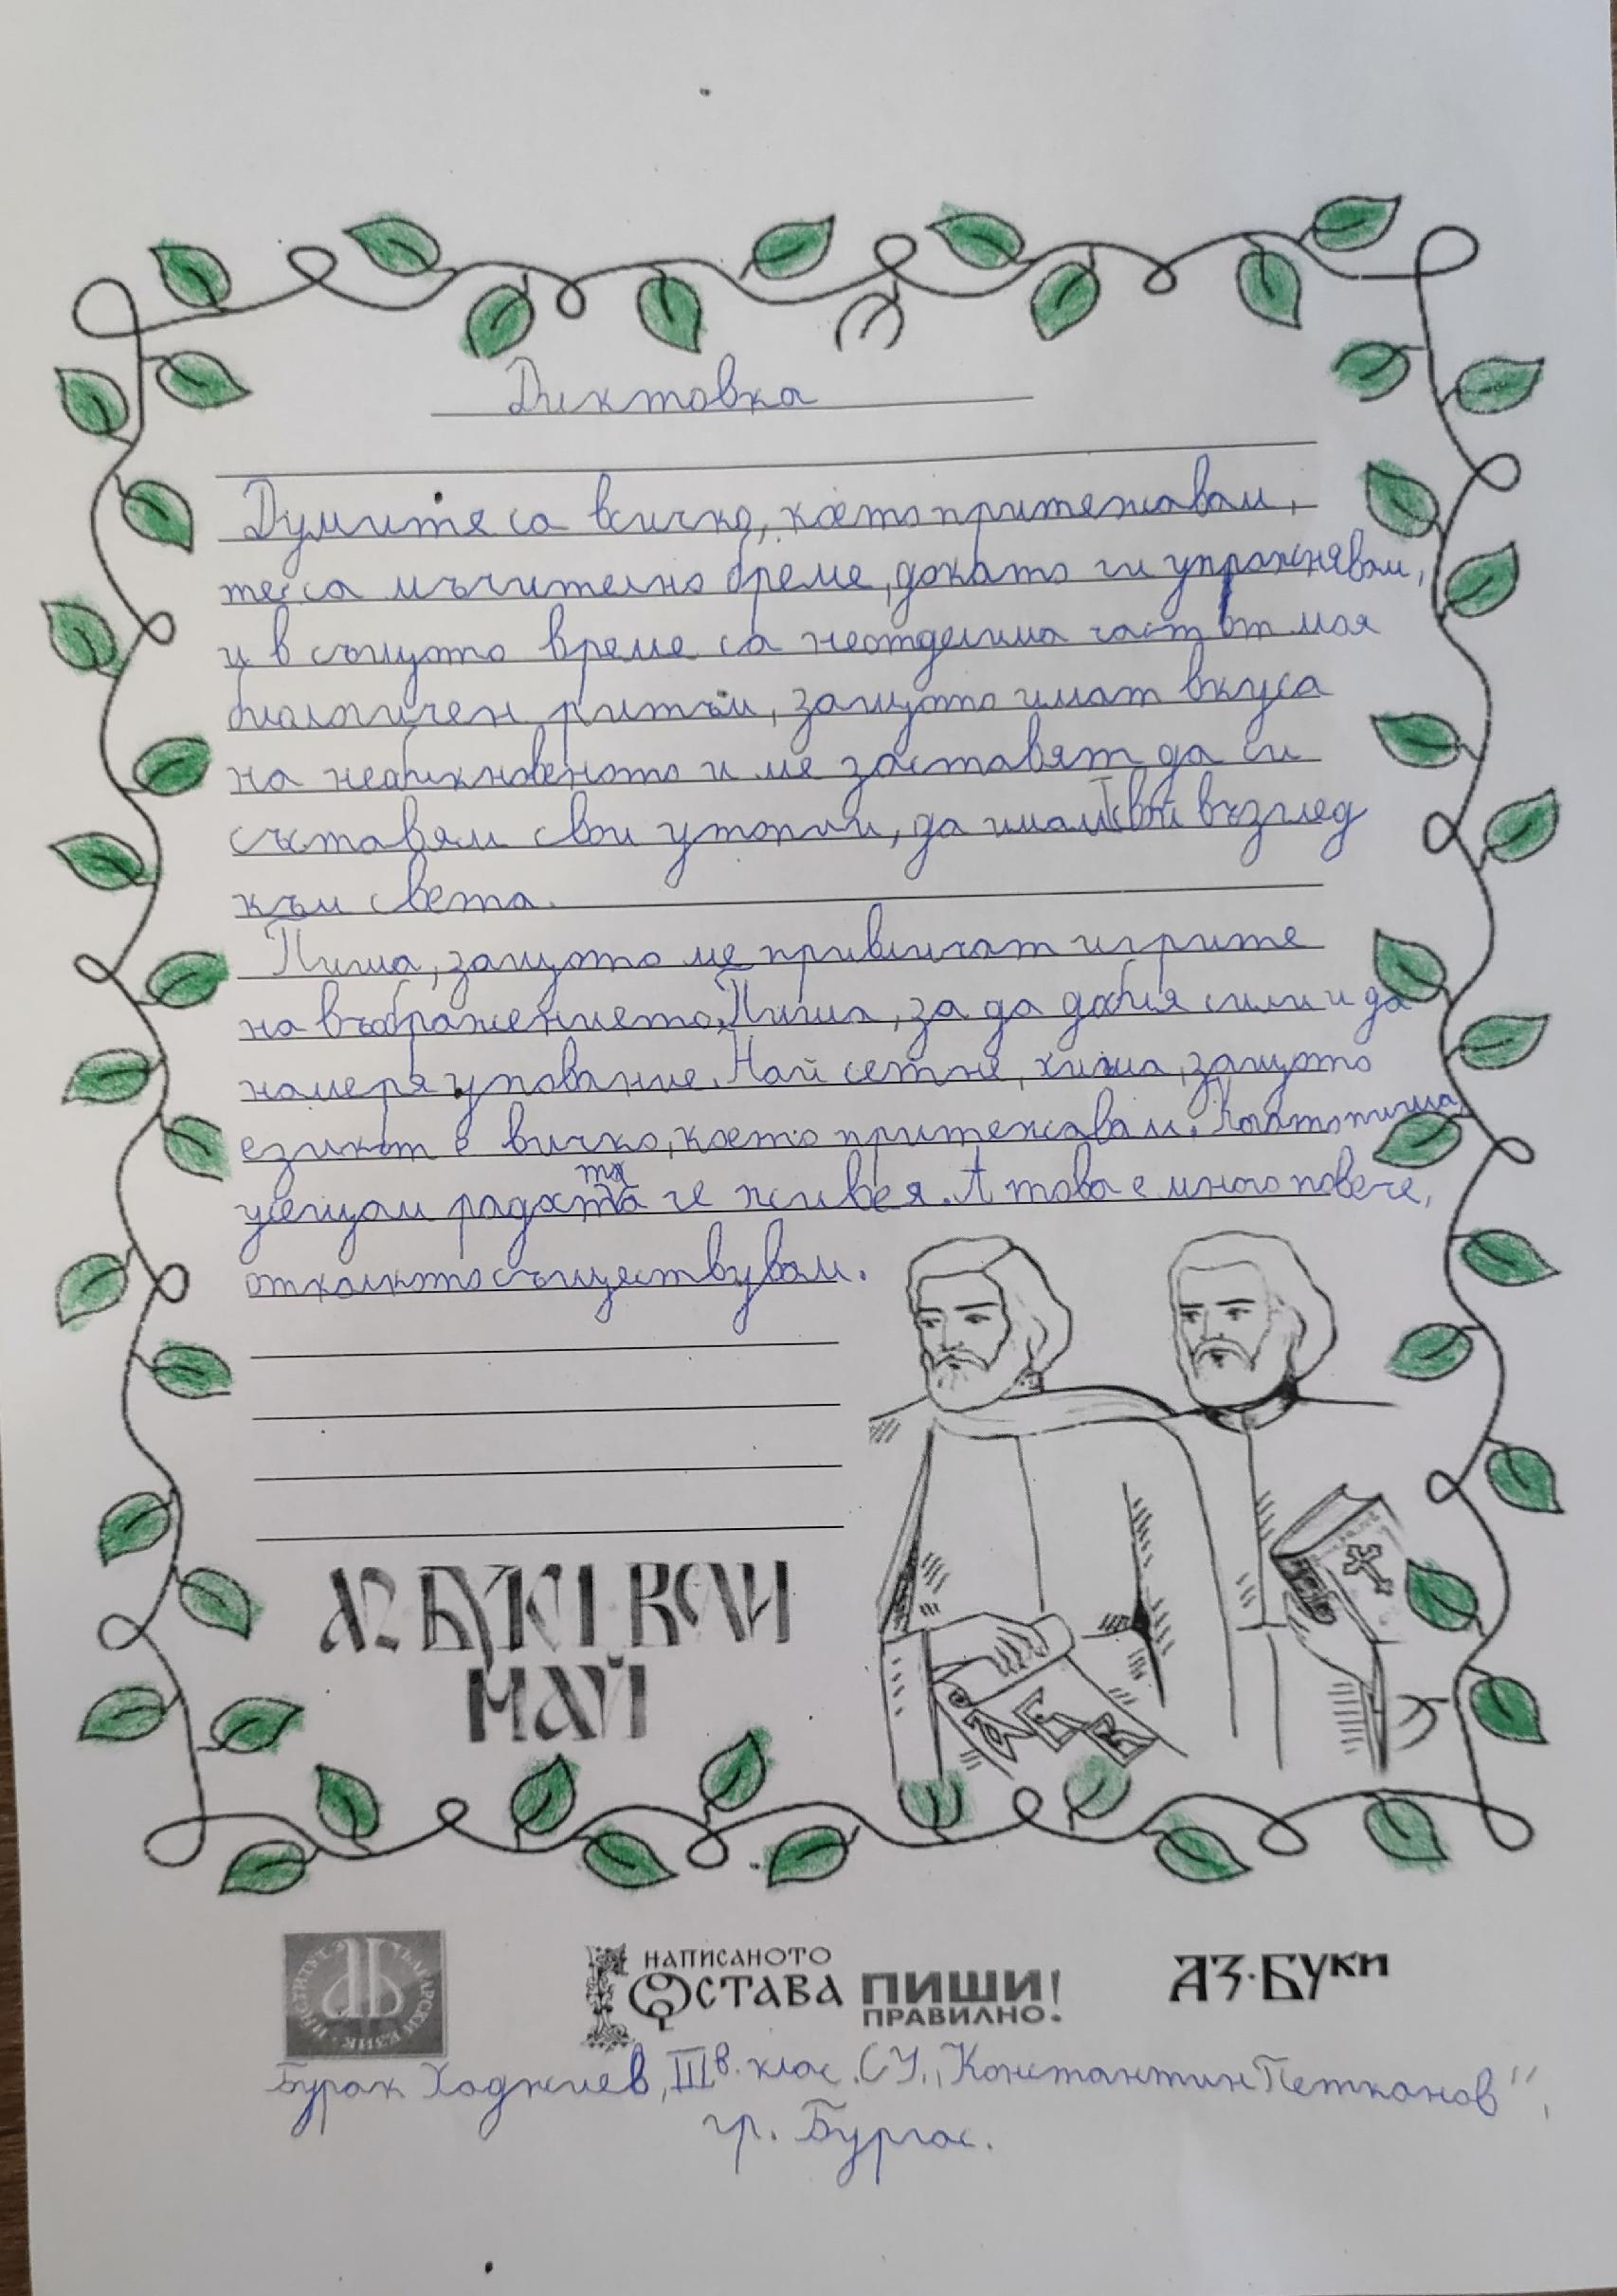 Диктовка
Думите са всичко, което притежавам,
те са мъчително бреме, докато ги упражнявам,
и в същото време са неотделима част от моя
биологичен ритъм, защото имат вкуса
на необикновеното и ме заставят да си
съставям свои утопии, да имам свой възглед
към света.
Пиша, защото ме привличат игрите
на въображението. Пиша, за да добия сили и да
намеря упование. Най сетне, пиша, защото
езикът е вичко, което притежавам. Когато пиша,
усещам радостта че живея. А това е много повече,
отколкото съществувам.
АЗ БУКИ ВЕДИ
МАЙ
АБВ
ИНСТИТУТ ЗА БЪЛГАРСКИ ЕЗИК
НАПИСАНОТО
ОСТАВА ПИШИ
ПРАВИЛНО!
АЗ·БУКИ
Бурак Хаджиев, III в. клас. СУ „Константин Петканов",
гр. Бургас.